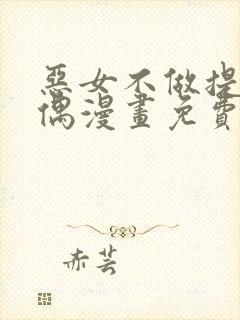 惡女不做提
偶漫畫免費
赤芸